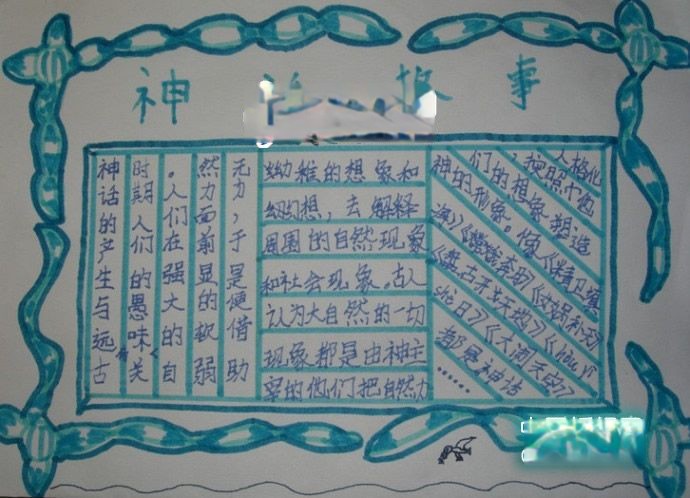 神 故 事
神话的产生与远古
时期人们的愚味有关
。人们在强大的自
然力面前显的软弱
无力，于是便借助
幼稚的想象和
幻想，去解释
周围的自然现象
和社会现象。古人
认为大自然的一切
现象都是由神主
宰的他们把自然力
人格化
，按照他
们的想象塑造
神的形象。像《精卫填
海》《嫦娥奔月》《女娲补天》
《盘古开天地》《hou yi
she日》《大闹天宫》
都是神话
……